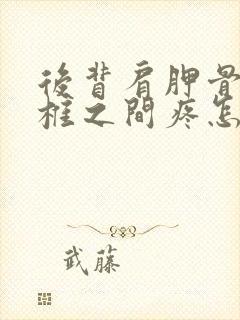 後背肩胛骨
柱之間疼怎
武藤